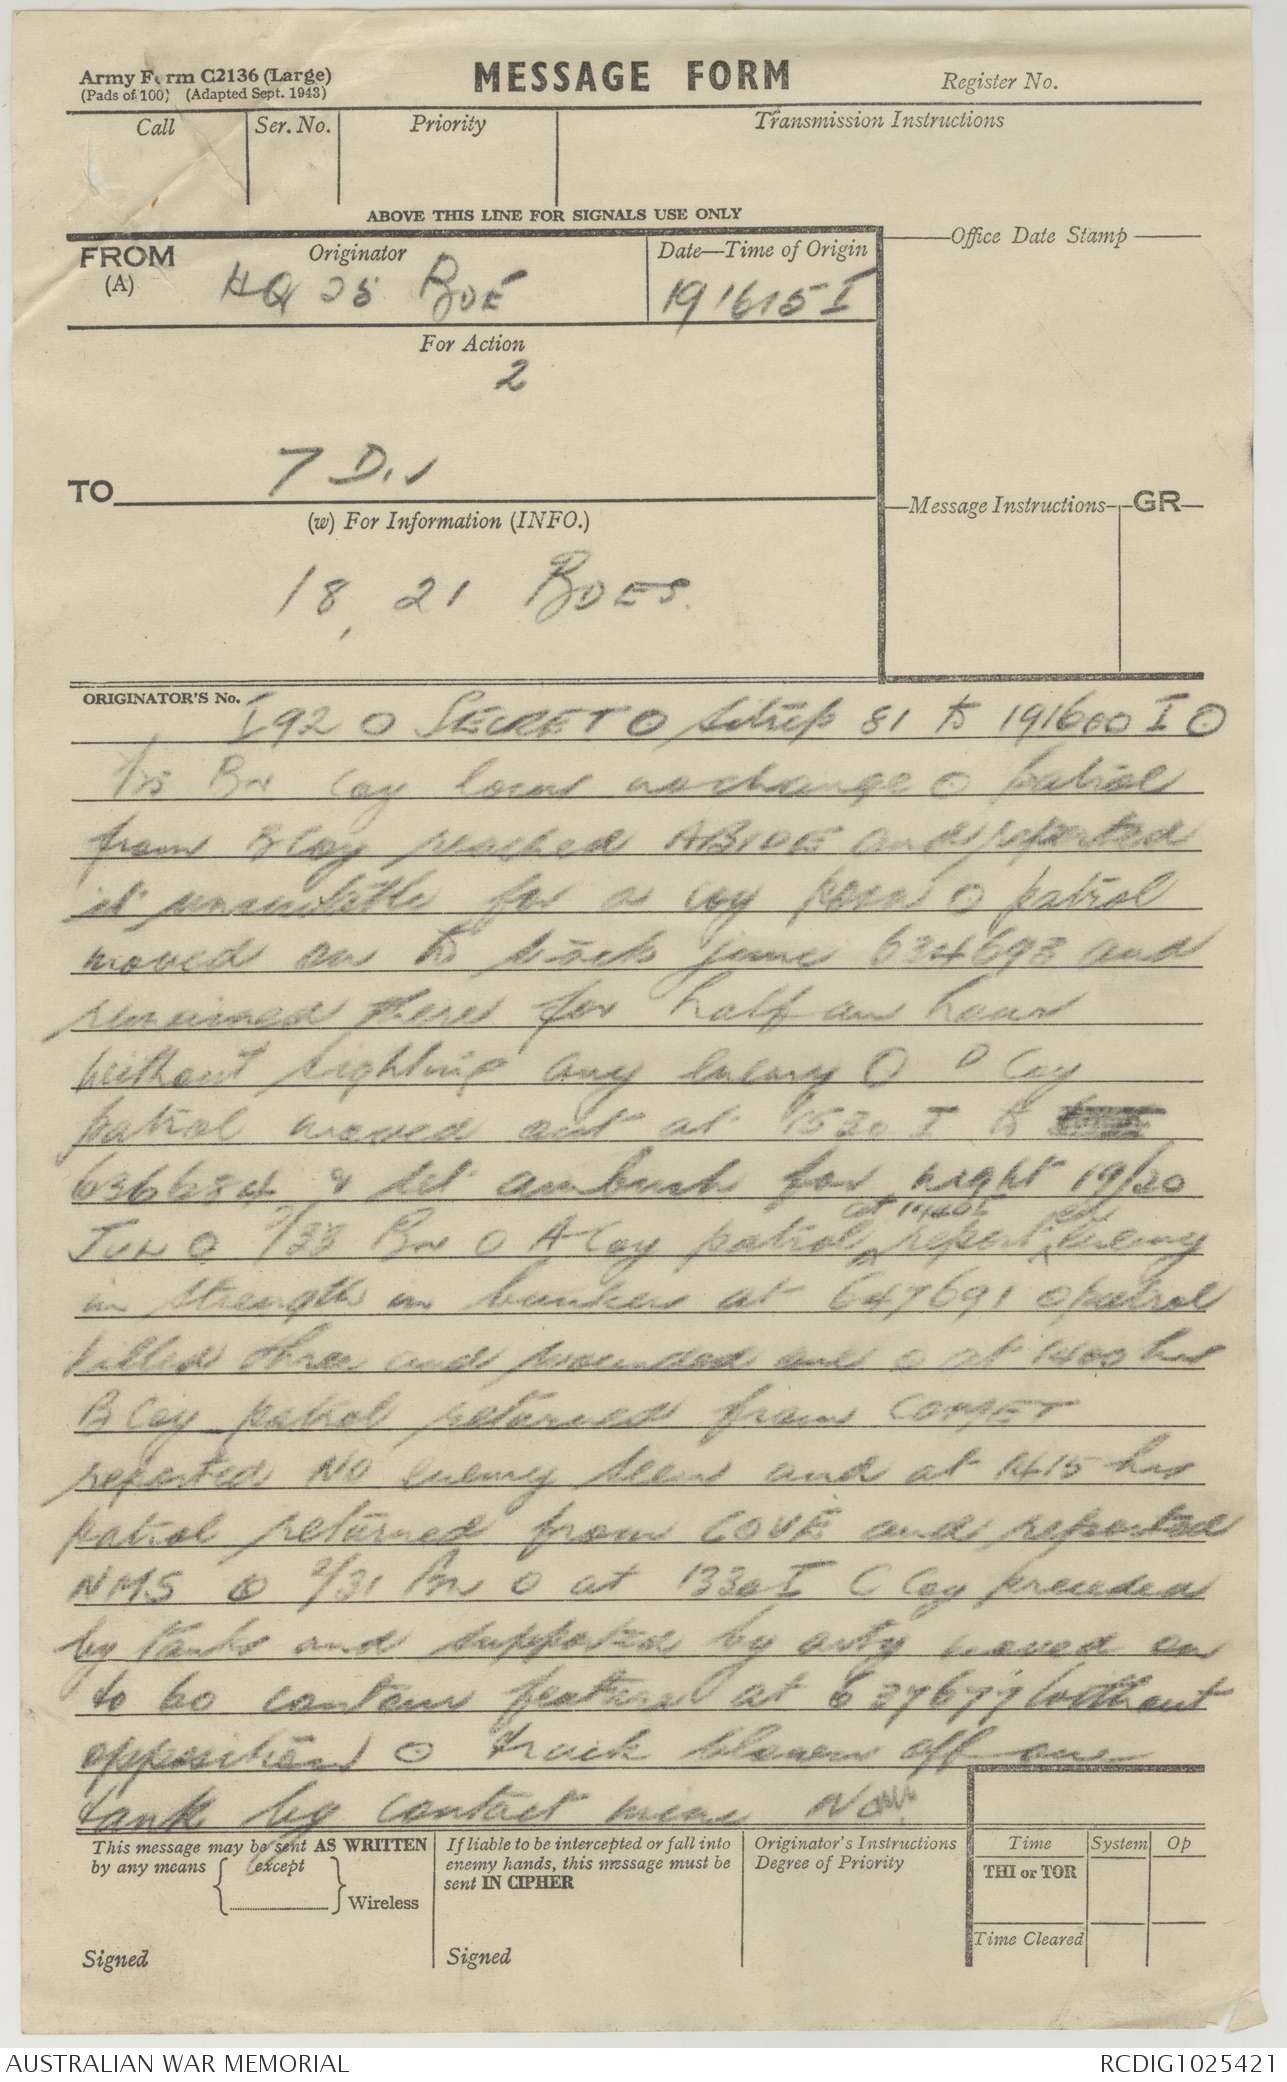 Army Form C2136 (Large)
(Pads of 100) (Adapted Sept. 1943)
MESSAGE FORM
Register No.
Call
Ser. No.
Priority
Transmission Instructions
ABOVE THIS LINE FOR SIGNALS USE ONLY
FROM
(A)
Originator
HQ 25 BDE
Date—Time of Origin
191615 I
Office Date Stamp
For Action
2
7 Div
TO
(w) For Information (INFO.)
18, 21 BDES.
Message Instructions
GR
ORIGINATOR'S No.
I92 O SECRET O Sitrep 81 to 191600 I O
Bn Coy locns no change O patrol
from B Coy reached ABIDE and reported
it unsuitable for a coy posn O patrol
moved on to track junc 634693 and
remained there for half an hour
without sighting any enemy O D Coy
patrol moved out at 1530 I to
636684 & set ambush for night 19/20
Jun O 2/33 Bn O A Coy patrol at 1140I report enemy
in strength in bunkers at 647691 O patrol
killed three and wounded one O at 1400 hrs
B Coy patrol returned from COMET
reported NO enemy seen and at 1415 hrs
patrol returned from COVE and reported
NMS O 2/31 Bn O at 1330 I C Coy preceded
by tanks and supported by arty moved on
to 60 contour feature at 637677 without
opposition O track blown off one
tank by contact mine
This message may be sent AS WRITTEN
by any means { except } Wireless
Signed
If liable to be intercepted or fall into
enemy hands, this message must be
sent IN CIPHER
Signed
Originator's Instructions
Degree of Priority
Time
System
Op
THI or TOR
Time Cleared
AUSTRALIAN WAR MEMORIAL
RCDIG1025421